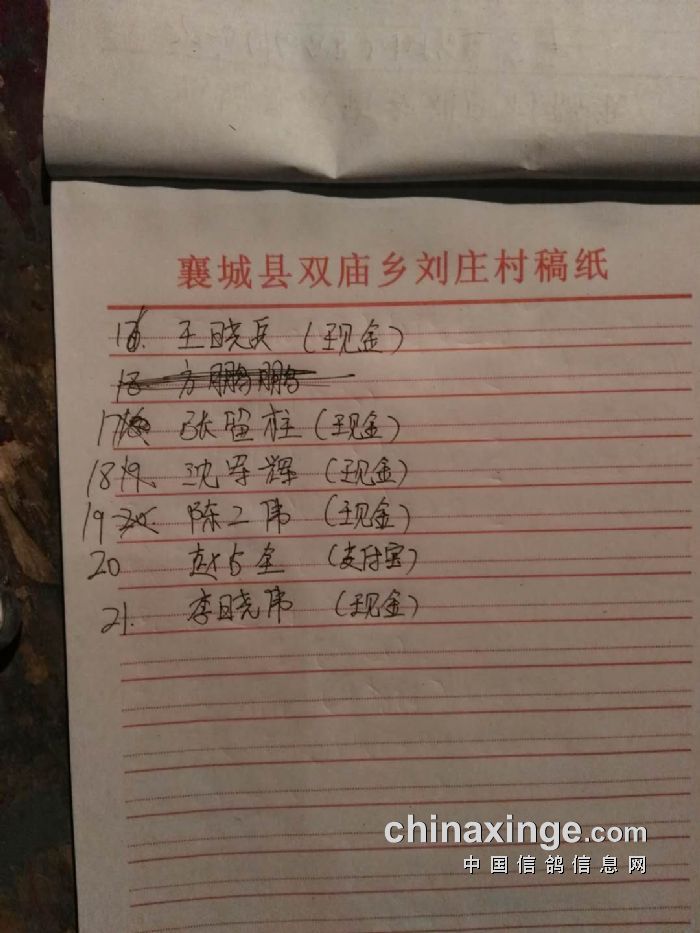 襄城县双庙乡刘庄村稿纸
16. 王晓兵 (现金)
18 方鹏鹏
17 张留柱 (现金)
18 19. 沈军辉 (现金)
19 20. 陈二伟 (现金)
20 赵占奎 (支付宝)
21. 李晓伟 (现金)
chinaxinge.com
中国信鸽信息网